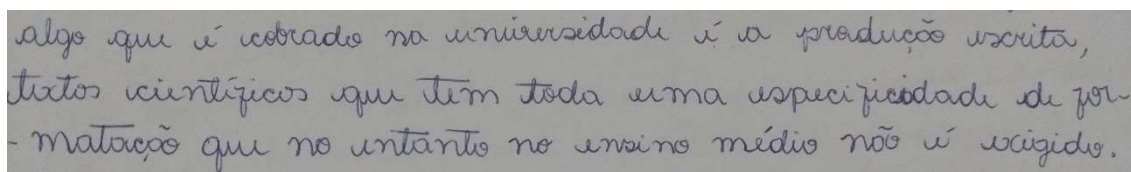 algo que é cobrado na universidade é a produção escrita,
textos científicos que tem toda uma especificidade de for-
-matação que no entanto no ensino médio não é exigido.